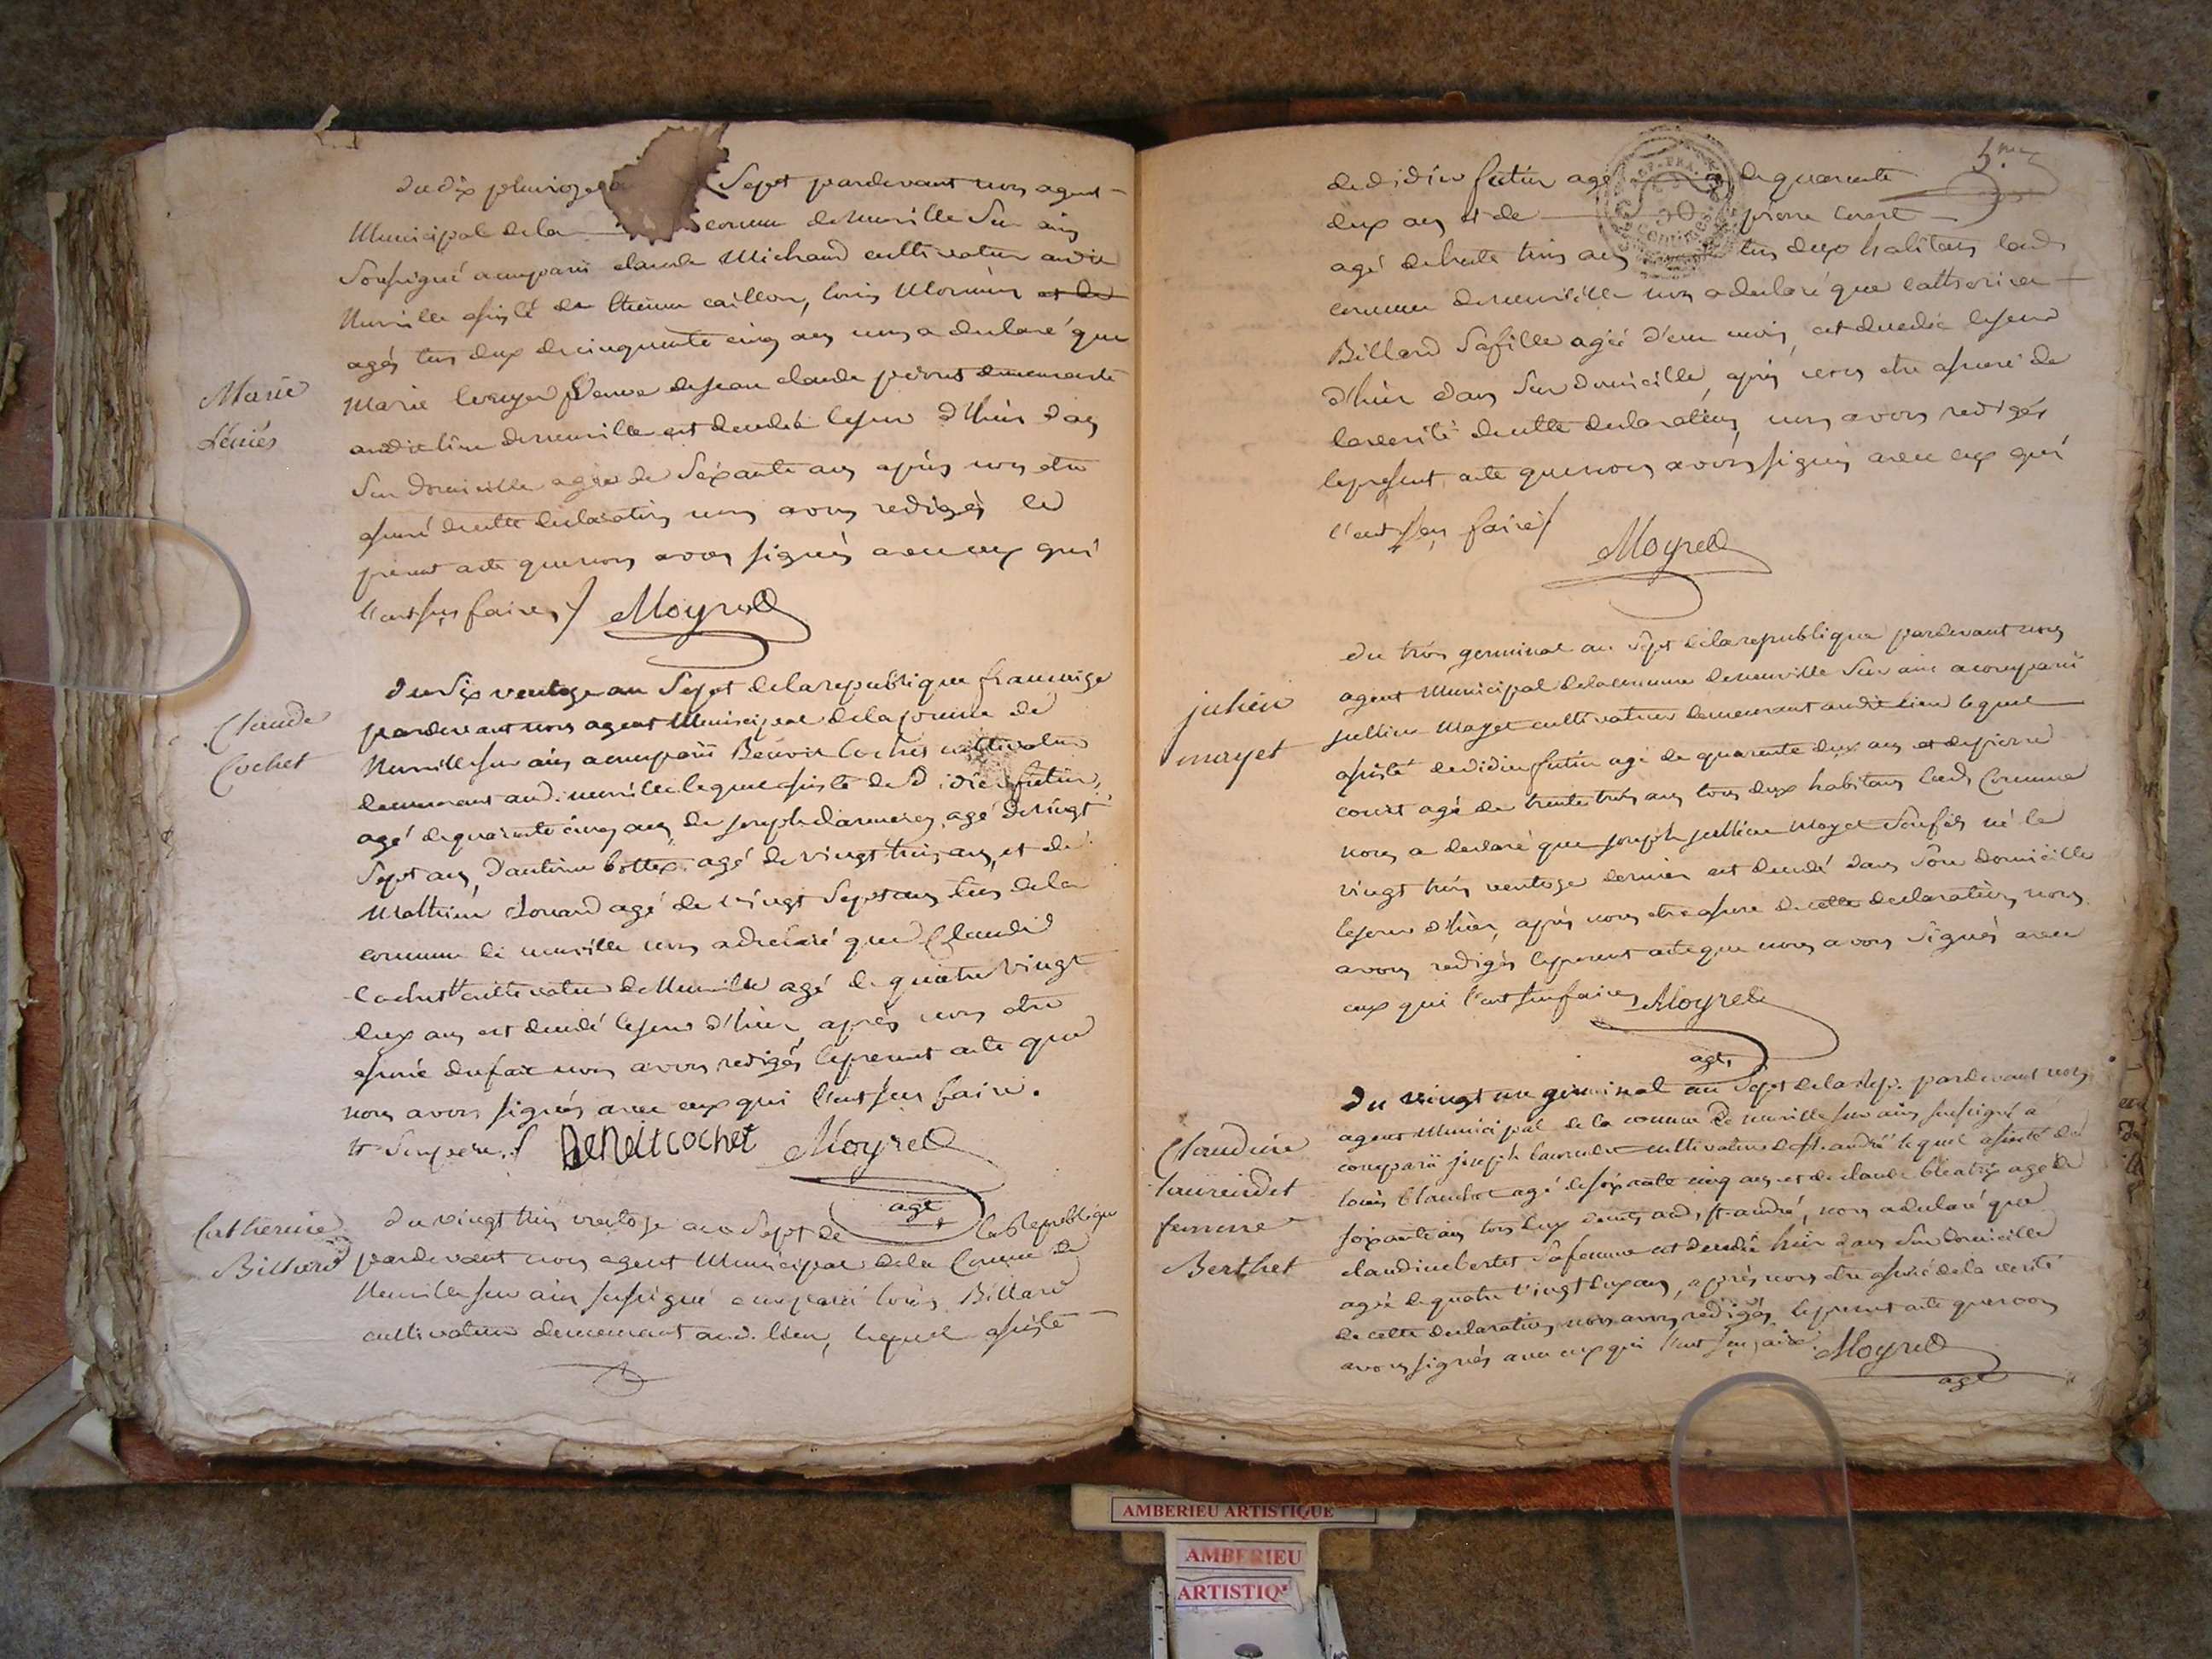 du dix pluviose Sept pardevant nous agent
Municipal de la comune de neuville Sur ain
Sousigné a comparü claude Michaud cultivateur audit
Neuville assisté de caillon, louis et de
agés tus deux de cinquante cinq ans nous a declaré que
Marie
Marie Veuve de jean claude
audit lieu de neuville est decedée le jour d'hier dans
Son domicille agée de Séxante ans après nous etre
assuré de cette declaration nous avons redigés le
present acte que nous avons signés avec eux qui
l'ont sçus faires / Moyret
Claude
Cochet
du Six ventose an Sept de la republique française
pardevant nous agent Municipal de la comune de
Neuville sur ain a comparü Benoit Cochet cultivateur
demeurant aud. neuville lequel assisté de Didier futin,
agé de quarante cinq ans, de joseph agé de vingt
Sept ans, d'antoine bottex agé de vingt trois ans, et de
Mathieu agé de vingt Sept ans tus de la
comune de neuville nous a declaré que Claude
Cochet cultivateur de Neuville agé de quatre vingt
deux ans est decedé le jour d'hier, après nous etre
assuré du fait nous avons redigés le present acte que
nous avons signés avec eux qui l'ont sçu faire.
Son pere. / Benoit cochet Moyret
agt
Catherine
Billard
du vingt trois ventose an Sept de la Republique
pardevant nous agent Municipal de la Comune de
Neuville sur ain sousigné a comparü louis Billard
cultivateur demeurant aud. lieu, lequel assisté
5.me
de didier futin agé de quarente
deux ans et de pierre
agé de trente trois ans tus deux habitans lad.
comune de neuville nous a declaré que catherine
Billard Sa fille agée d'un mois, est decedée le jour
d'hier dans Son domicille, après nous etre assuré de
la verité de cette declaration, nous avons redigés
le present acte que nous avons signés avec eux qui
l'ont sçu faire /
Moyret
julien
mayet
du trois germinal an Sept de la republique pardevant nous
agent Municipal de la comune de neuville Sur ain a comparü
jullien Mayet cultivateur demeurant audit lieu lequel
assisté de didier futin agé de quarente deux ans et de pierre
agé de trente trois ans tous deux habitans lad. Comune
nous a declaré que joseph jullien Mayet Son fils né le
vingt trois ventose dernier est decedé dans Son domicille
le jour d'hier, après nous etre assuré de cette declaration, nous
avons redigés le present acte que nous avons signés avec
eux qui l'ont sçu faire, Moyret
agt.
Claudine
femme
Berthet
du vingt un germinal an Sept de la Rep. pardevant nous
agent Municipal de la comune de neuville sur ain sousigné a
comparü joseph cultivateur de st. andré lequel assisté de
louis agé de soixante cinq ans et de claude agé de
soixante ans tous deux aud. st. andré, nous a declaré que
claudine bertet Sa femme est decedée hier dans Son domicille
agée de quatre vingt deux ans, après nous etre assuré de la verité
de cette declaration nous avons redigés le present acte que nous
avons signés avec eux qui l'ont sçu faire. Moyret
agt
AMBERIEU ARTISTIQUE
AMBERIEU
ARTISTIQ